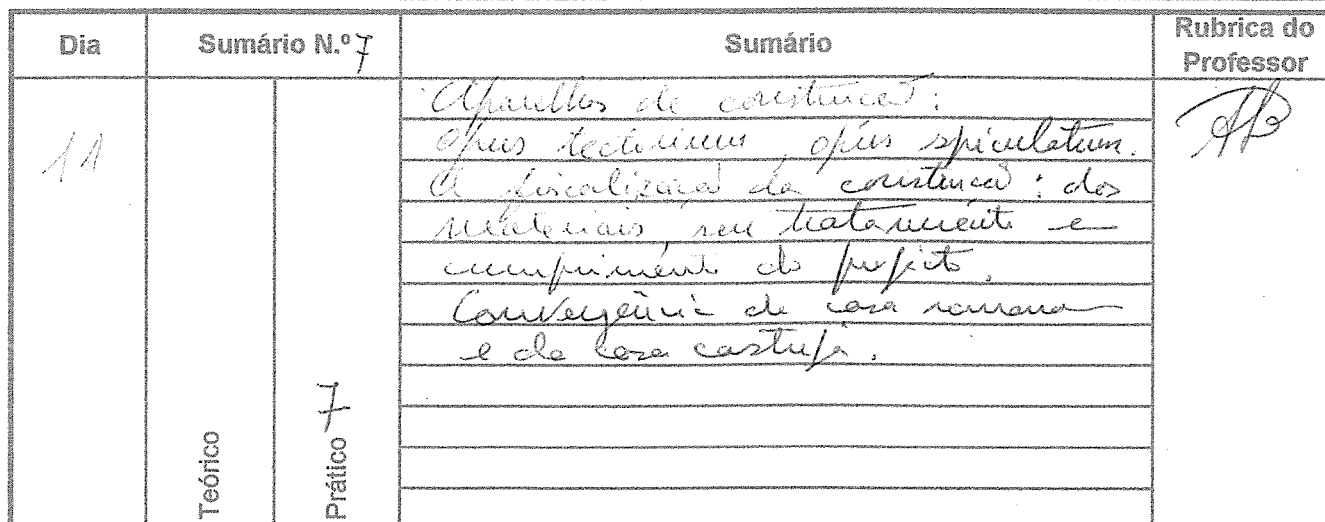 Dia
Sumário N.º 7
Sumário
Rubrica do
Professor
11
Aparelhos de construção:
opus tectorium, opus spiculatum.
A fiscalização da construção: dos
materiais, seu tratamento e
cumprimento do projecto.
Convergência da casa romana
e da casa castreja.
Teórico
Prático 7